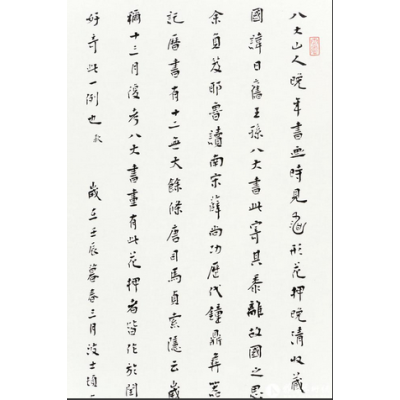 八大山人晚年書画時見形花押晚清收藏
國諱曰舊王孫八大書此寄其黍離故國之思
余審讀南宋薛尚功歷代鐘鼎彝器
記曆書有十二無大餘條唐司馬貞索隱云歲
稱十三月後考八大書畫有此花押者皆作於閏
好奇此一例也 歲在壬辰暮春三月波士頓一